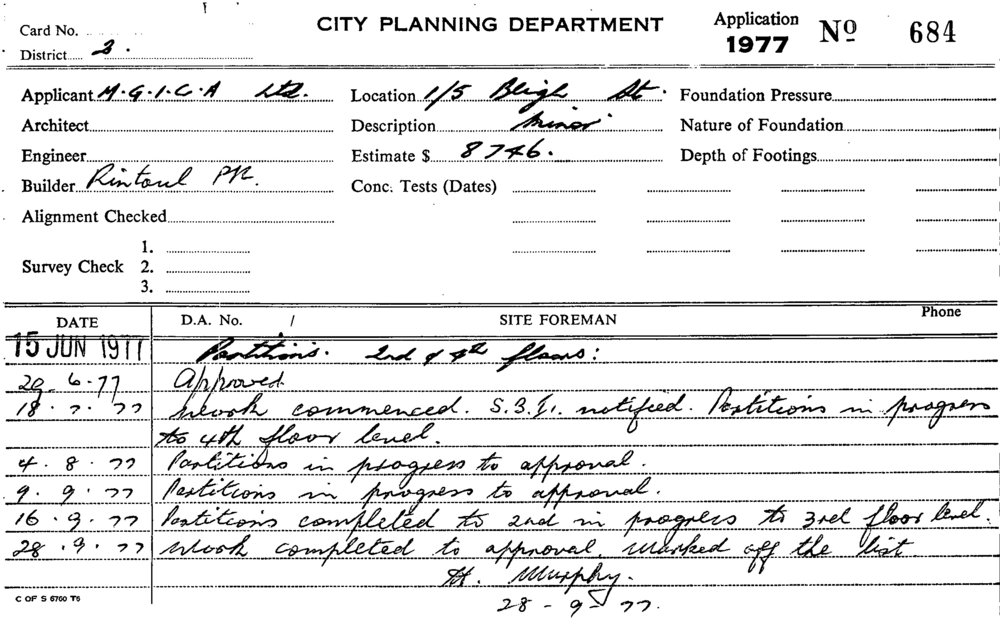 CITY PLANNING DEPARTMENT
Application 1977 Nº 684
Card No.
District 3.
Applicant M.G.I.C.A Ltd. Location 1/5 Bligh St. Foundation Pressure
Architect Description Minor Nature of Foundation
Engineer Estimate $ 8746. Depth of Footings
Builder Rintoul P/L. Conc. Tests (Dates)
Alignment Checked
1.
Survey Check 2.
3.
DATE D.A. No. / SITE FOREMAN Phone
15 JUN 1977 Partitions. 2nd & 4th floors:
29-6-77 Approved
18.7.77 Work commenced. S.B.I. notified. Partitions in progress
to 4th floor level.
4.8.77 Partitions in progress to approval.
9.9.77 Partitions in progress to approval.
16.9.77 Partitions completed to 2nd in progress to 3rd floor level.
28.9.77 Work completed to approval. Marked off the list
H. Murphy.
28-9-77.
C OF S 6700 T6